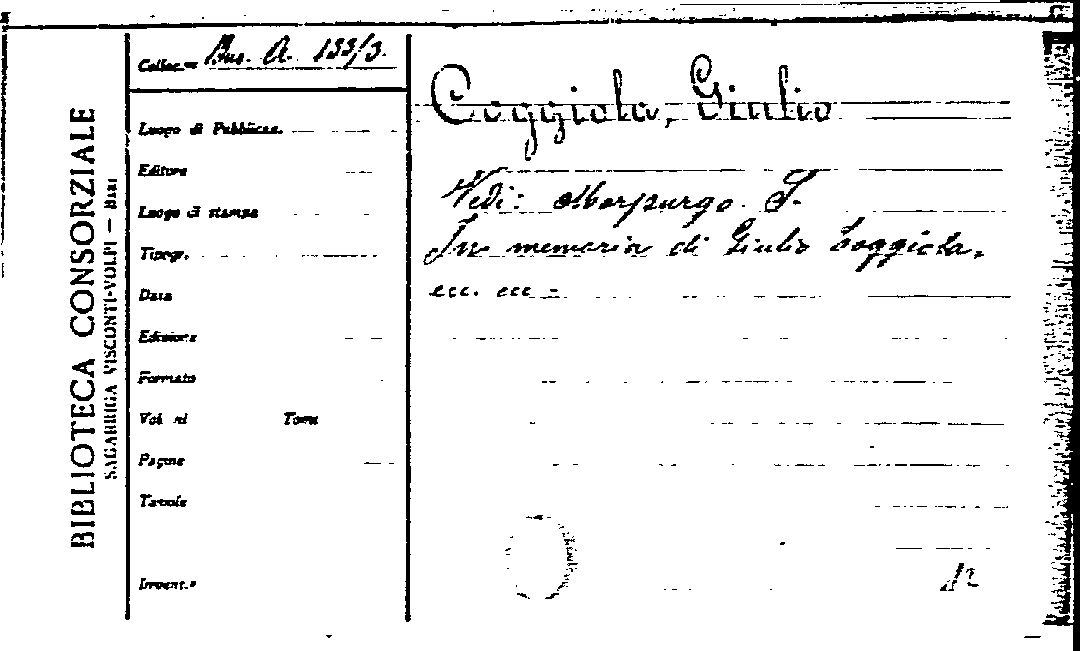 BIBLIOTECA CONSORZIALE
SAGARRIGA VISCONTI-VOLPI — BARI
Colloc.ne Bus. A. 133/3.
Luogo di Pubblicaz.
Editore
Luogo di stampa
Tipogr.
Data
Edizione
Formato
Vol. ni Tomi
Pagine
Tavole
Invent.°
Coggiola, Giulio
Vedi: Morpurgo S.
In memoria di Giulio Coggiola,
ecc. ecc -